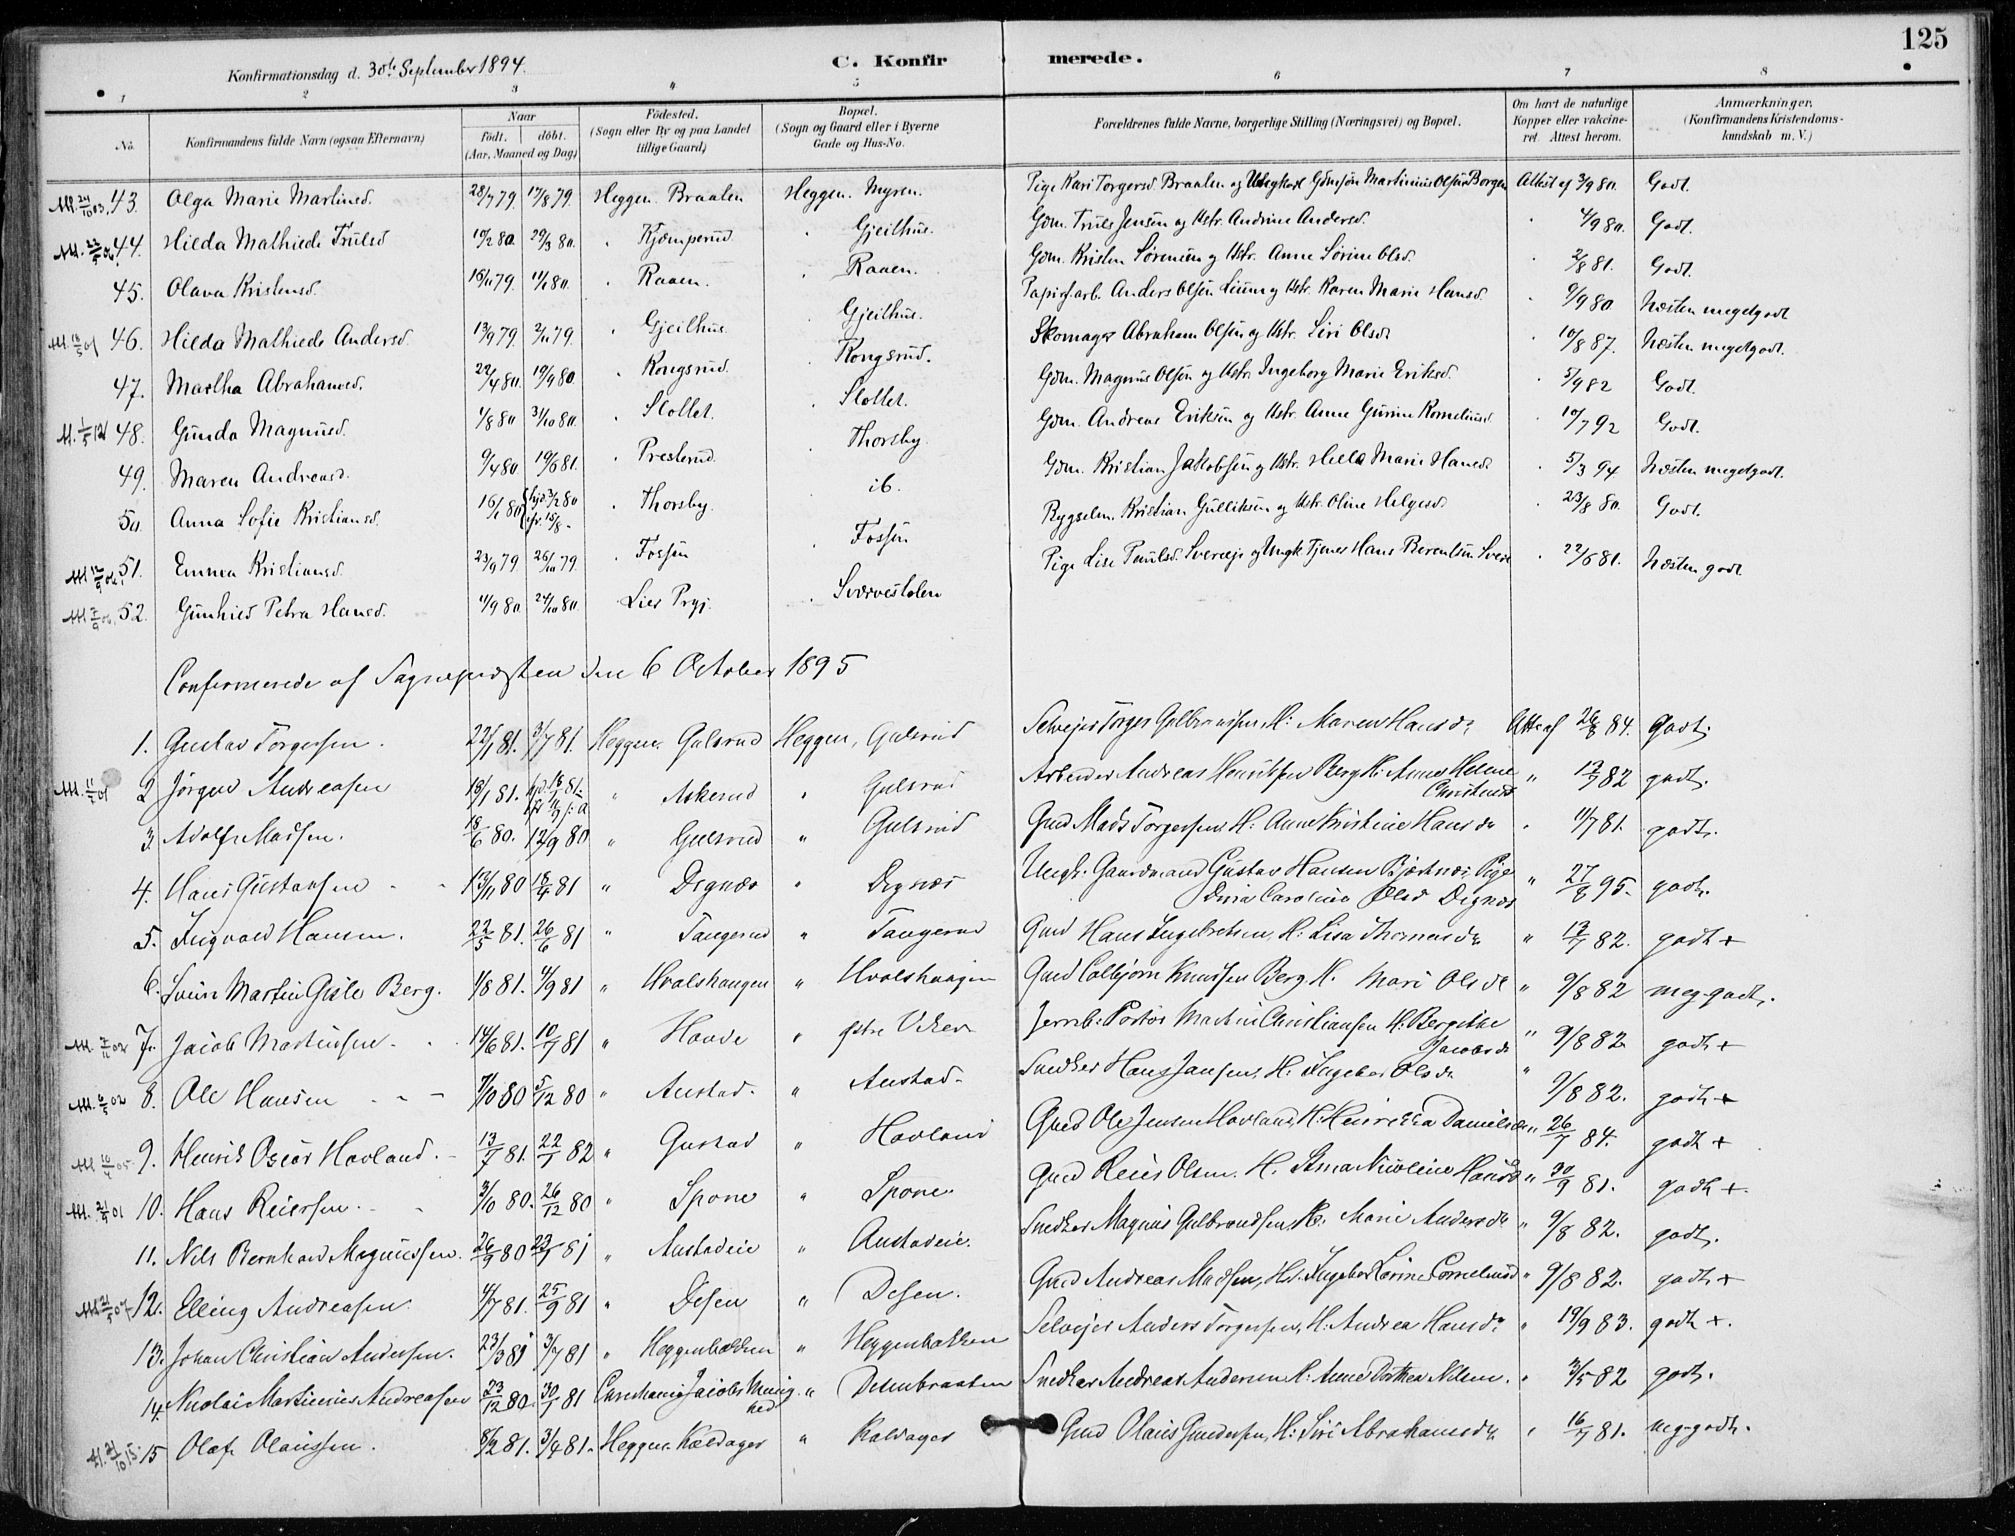 125
Konfirmationsdag d. 30te September 1894.
C. Konfirmerede.
1 2 3 4 5 6 7 8
No.
Konfirmandens fulde Navn (ogsaa Efternavn)
Naar
födt. döbt.
(Aar, Maaned og Dag)
Födested.
(Sogn eller By og paa Landet
tillige Gaard)
Bopæl.
(Sogn og Gaard eller i Byerne
Gade og Hus-No.
Forældrenes fulde Navne, borgerlige Stilling (Næringsvei) og Bopæl.
Om havt de naturlige
Kopper eller vakcine-
ret. Attest herom.
Anmærkninger.
(Konfirmandens Kristendoms-
kundskab m. V.)
43. Olga Marie Martinsd. 28/7 79. 17/8 79. Heggen. Braaten Heggen. Myren. Pige Kari Torgersd Braaten og Ungkarl Gdmsøn Martinius Olsen Borgen Attest af 3/9 80. Godt.
44. Hilda Mathiede Trulsd 10/2 80. 29/3 80. Kjæmperud Gjeilhus. Gdm. Truls Jensen og Hstr. Andrine Andersd. 4/9 80. Godt.
45. Olava Kristensd. 16/11 79. 11/1 80. Raaen. Raaen. Gdm. Kristen Sørensen og Hstr. Anne Sørine Olsd. 2/8 81. Godt.
46. Hilda Mathiede Andersd. 13/9 79. 2/11 79. Gjeilhus. Gjeilhus. Papirfarb. Anders Olsen Lium og Hstr. Karen Marie Hansd. 9/9 80 Næsten megetgodt
47. Martha Abrahamsd. 22/4 80. 19/9 80 Kongsrud. Kongsrud. Skomager Abraham Olsen og Hstr. Siri Olsd. 10/8 87. Næsten megetgodt.
48. Gunda Magnusd. 1/8 80 31/10 80. Slottet. Slottet. Gdm. Magnus Olsen og Hstr. Ingeborg Marie Eriksd. 5/9 82 Godt.
49. Maren Andreasd. 9/4 80 19/6 81. Presterud Thorsby Gdm. Andreas Eriksen og Hstr. Anne Gurine Korneliusd 10/7 92 Godt.
50. Anna Sofie Kristiansd. 16/1 80 hjd. 3/2 80 Thorsby. ib. Gdm. Kristian Jakobsen og Hstr. Hella Marie Hansd. 5/3 94 Næsten megetgodt.
51. Emma Kristiansd. 23/9 79 26/10 79. Fossen Fossen Rygselm. Kristian Gulliksen og Hstr. Oline Helgesd. 23/8 80. Godt.
52. Gunhild Petra Hansd. 11/9 80. 24/10 80. Lier Prgj. Sværvestolen Pige Lise Paulsd. Svereeje og Ungk. Tjener Hans Berentsen Svere 22/6 81. Næsten godt
Confirmerede af Sognepræsten den 6 October 1895
1. Gustav Torgersen. 22/1 81. 3/7 81. Heggen. Gulsrud Heggen, Gulsrud Selvejer Torger Gulbrandsen, H: Maren Hansdr Atts af 26/8 84. godt.
2 Jørgen Andreasen 18/1 81. Askerud " Gulsrud Arbeider Andreas Henriksen Berg H. Anne Helene Christensd " 13/7 82 godt.
3. Adolf Madsen. 18/6 80. 12/9 80 " Gulsrud " Gulsrud Gmd Mads Torgersen H. Anne Kristine Hansdr 11/7 81. godt.
4. Hans Gustavsen 13/11 80 18/4 81 " Dignæs " Dignæs Ungk. Gaardmand Gustav Hansen Bjertnæs, Pige Dina Caroline Olsd Dignæs " 27/8 95. godt.
5. Ingvald Hansen. 22/5 81. 26/6 81 " Tangerud " Tangerud Gmd Hans Ingebretsen, H. Lisa Thomasdr " 13/7 82. godt +
6. Svein Martin Gisle Berg. 1/8 81. 11/9 81 " Hvalshaugen " Hvalshaugen Gmd Colbjørn Knudsen Berg H. Mari Olsdr " 9/8 82 meg. godt.
7. Jacob Martinsen 14/6 81. 10/7 81 " Hovde " østre Viker Jernb: Portør Martin Christiansen H: Bergitte Jacobsdr " 9/8 82 godt +
8. Ole Hansen 7/10 80 5/12 80 " Austad. " Austad. Snedker Hans Jansen, H. Ingebor Olsdr " 9/8 82. godt +
9. Henrik Oscar Hovland. 13/7 81. 22/1 82 " Gustad " Hovland Gmd Ole Jensen Hovland, H. Henrikka Danielsdr " 26/7 84. godt +
10. Hans Reiersen. 3/10 80. 26/12 80 " Spone " Spone. Gmd Reier Olsen. H. Anna Nicoline Hansd " 30/9 81. godt +.
11. Nils Bernhard Magnussen. 26/9 80 23/1 81 " Austadeie " Austadeie. Snedker Magnus Gulbrandsen, H. Marie Andersdr " 9/8 82. godt.
12. Elling Andreasen. 4/7 81. 25/9 81 " Desen " Desen. Gmd Andreas Madsen, H. Ingebor Lorine Corneliusd " 9/8 82. godt +
13. Johan Christian Andersen. 23/3 81 3/7 81 " Heggenbakken " Heggenbakken Selvejer Anders Torgersen, H. Andrea Hansdr " 19/9 83. godt +.
14. Nicolai Martinius Andreasen 23/12 80. 30/1 81 Jacobs Menig hed " Desenbraaten Snedker Andreas Andersen H. Anne Dorthea Nilsen. 3/5 82 godt.
15 Olaf Olaussen. 8/2 81. 3/4 81. Heggen. Kaldager " Kaldager Gmd Olaus Gundersen, H. Siri Abrahamsdr 16/7 81. meg. godt.